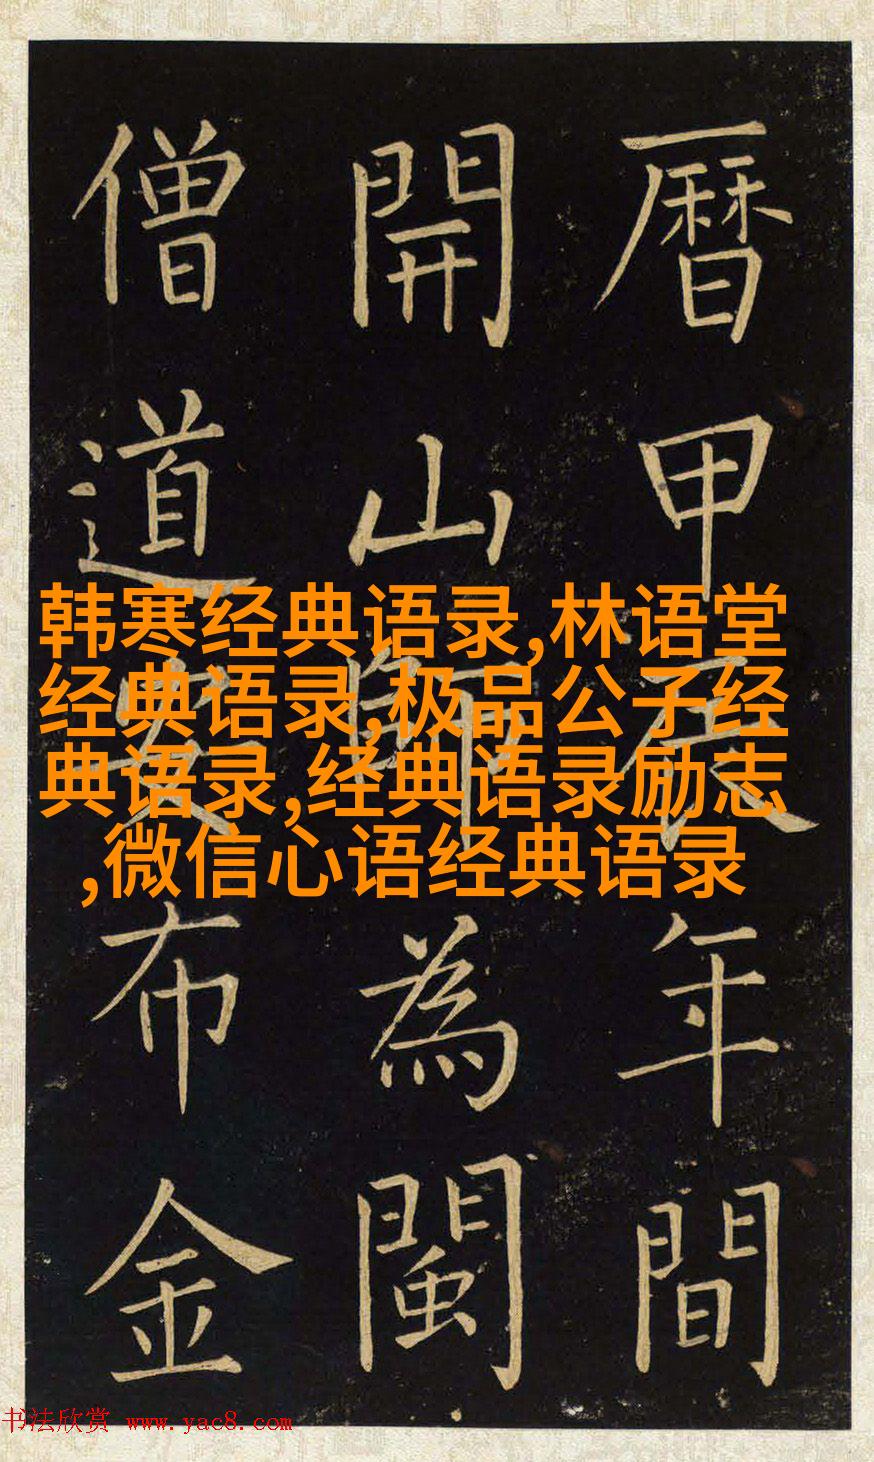 曆甲辰年間
開山師為閩
僧道安布金
韩寒经典语录,林语堂
经典语录,极品公子经
典语录,经典语录励志
,微信心语经典语录
书法欣赏 www.yac8.com